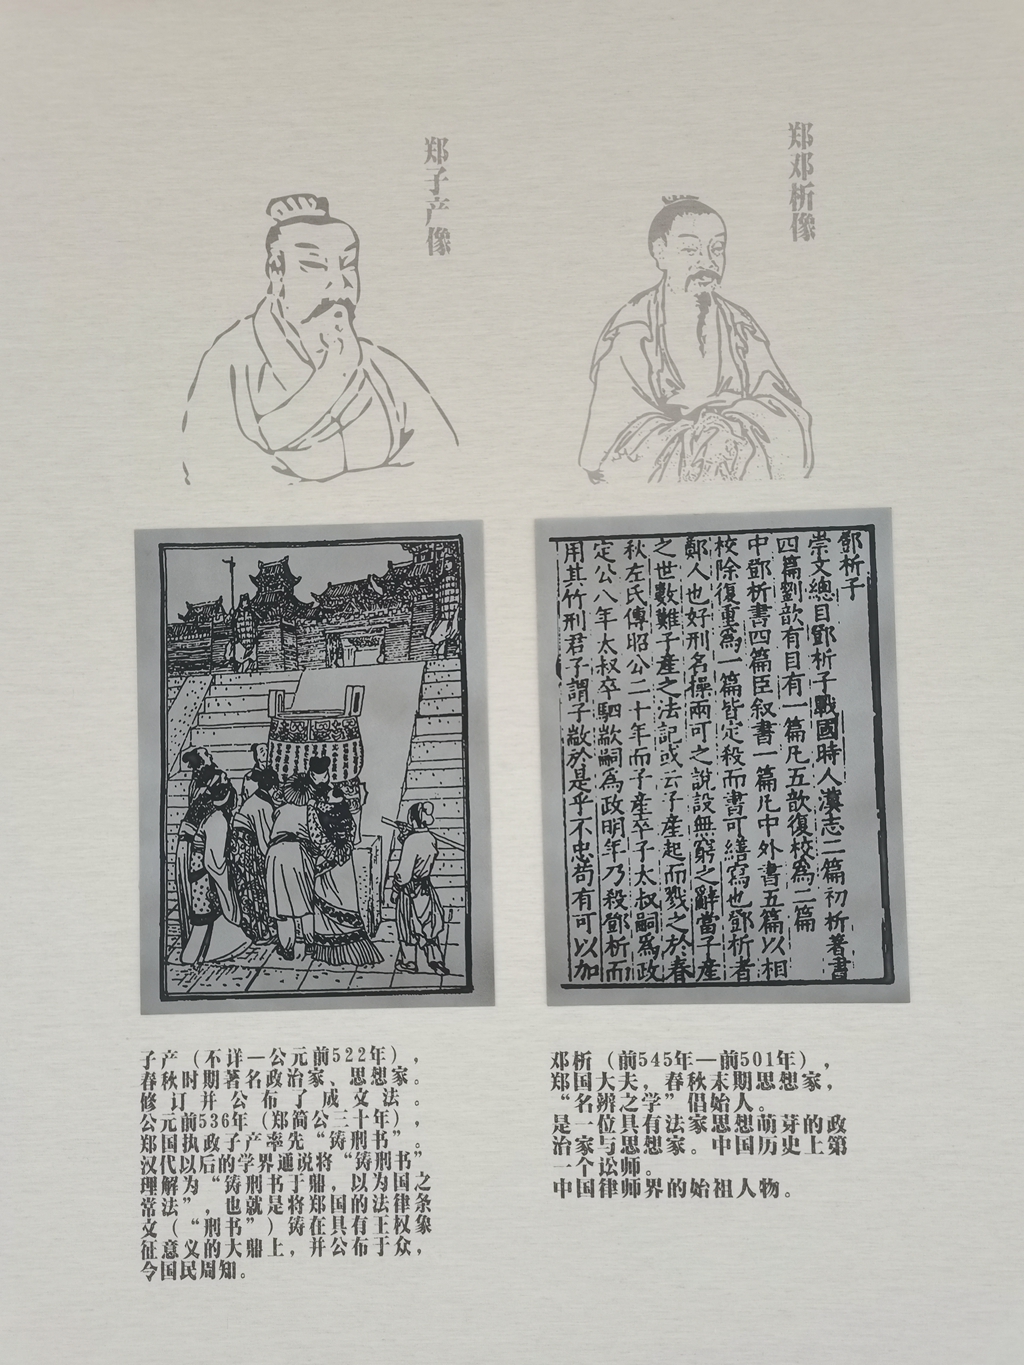 郑子产像
郑邓析像
鄧析子
崇文總目鄧析子戰國時人漢志二篇初析著書
四篇劉歆有目有一篇凡五歆復校為二篇
中鄧析書四篇臣叙書一篇凡中外書五篇以相
校除復重為一篇皆定殺而書可繕寫也鄧析者
鄭人也好刑名操兩可之說設無窮之辭當子產
之世數難子產之法記或云子產起而戮之於春
秋左氏傳昭公二十年而子產卒子太叔嗣為政
定公八年太叔卒駟歂嗣為政明年乃殺鄧析而
用其竹刑君子謂子歂於是乎不忠苟有可以加
子产（不详—公元前522年），
春秋时期著名政治家、思想家。
修订并公布了成文法。
公元前536年（郑简公三十年），
郑国执政子产率先“铸刑书”。
汉代以后的学界通说将“铸刑书”
理解为“铸刑书于鼎，以为国之
常法”，也就是将郑国的法律条
文（“刑书”）铸在具有王权象
征意义的大鼎上，并公布于众，
令国民周知。
邓析（前545年—前501年），
郑国大夫，春秋末期思想家，
“名辨之学”倡始人。
是一位具有法家思想萌芽的政
治家与思想家。中国历史上第
一个讼师。
中国律师界的始祖人物。